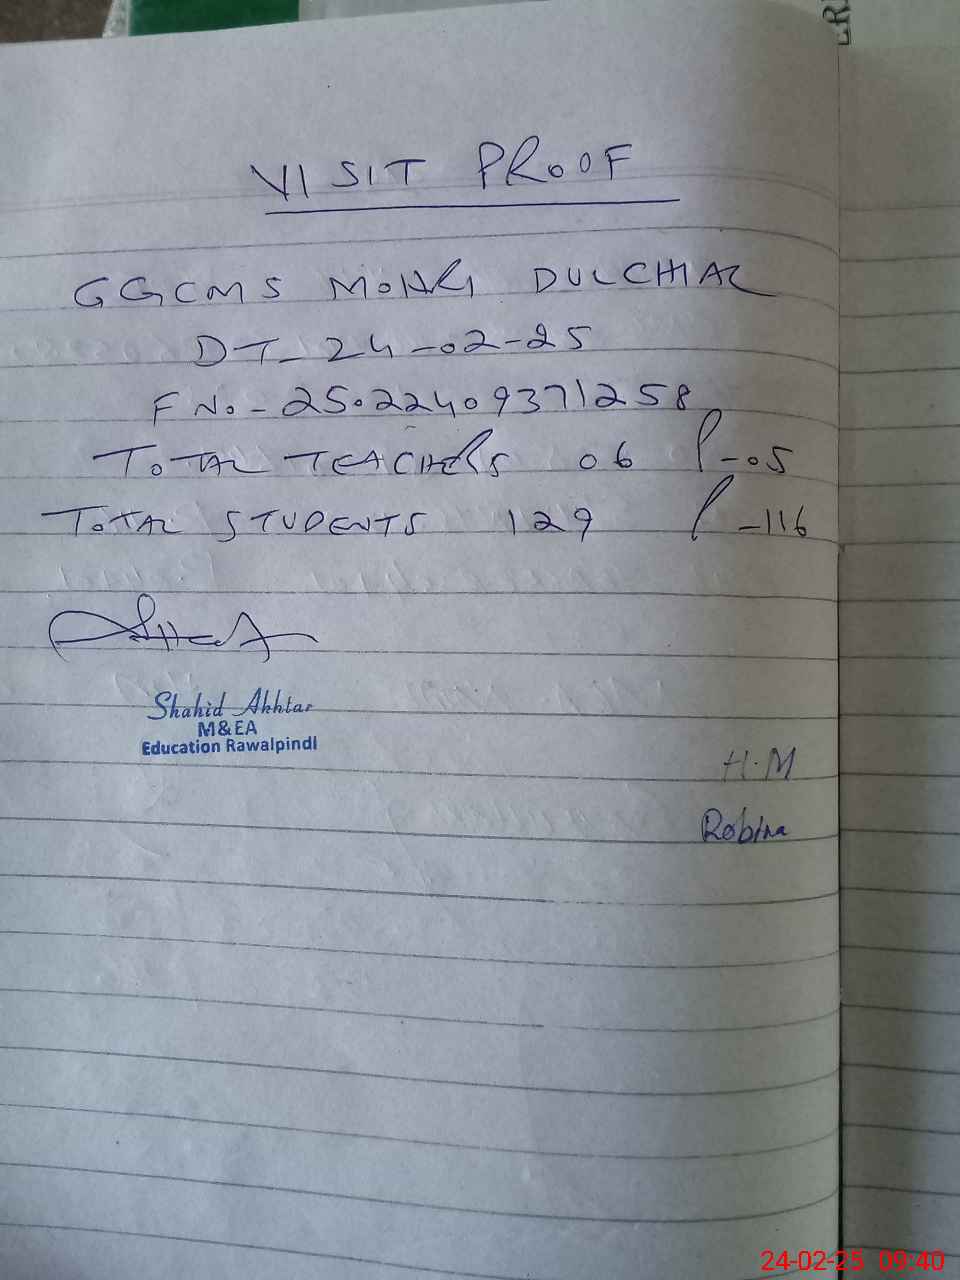 VISIT PROOF
GGCMS MOHRI DULCHIAL
DT- 24-02-25
F No. - 250224093771258
TOTAL TEACHERS 06 P-05
TOTAL STUDENTS 129 P-116
Shahid Akhtar
M&EA
Education Rawalpindi
H.M
Robina
24-02-25 09:40